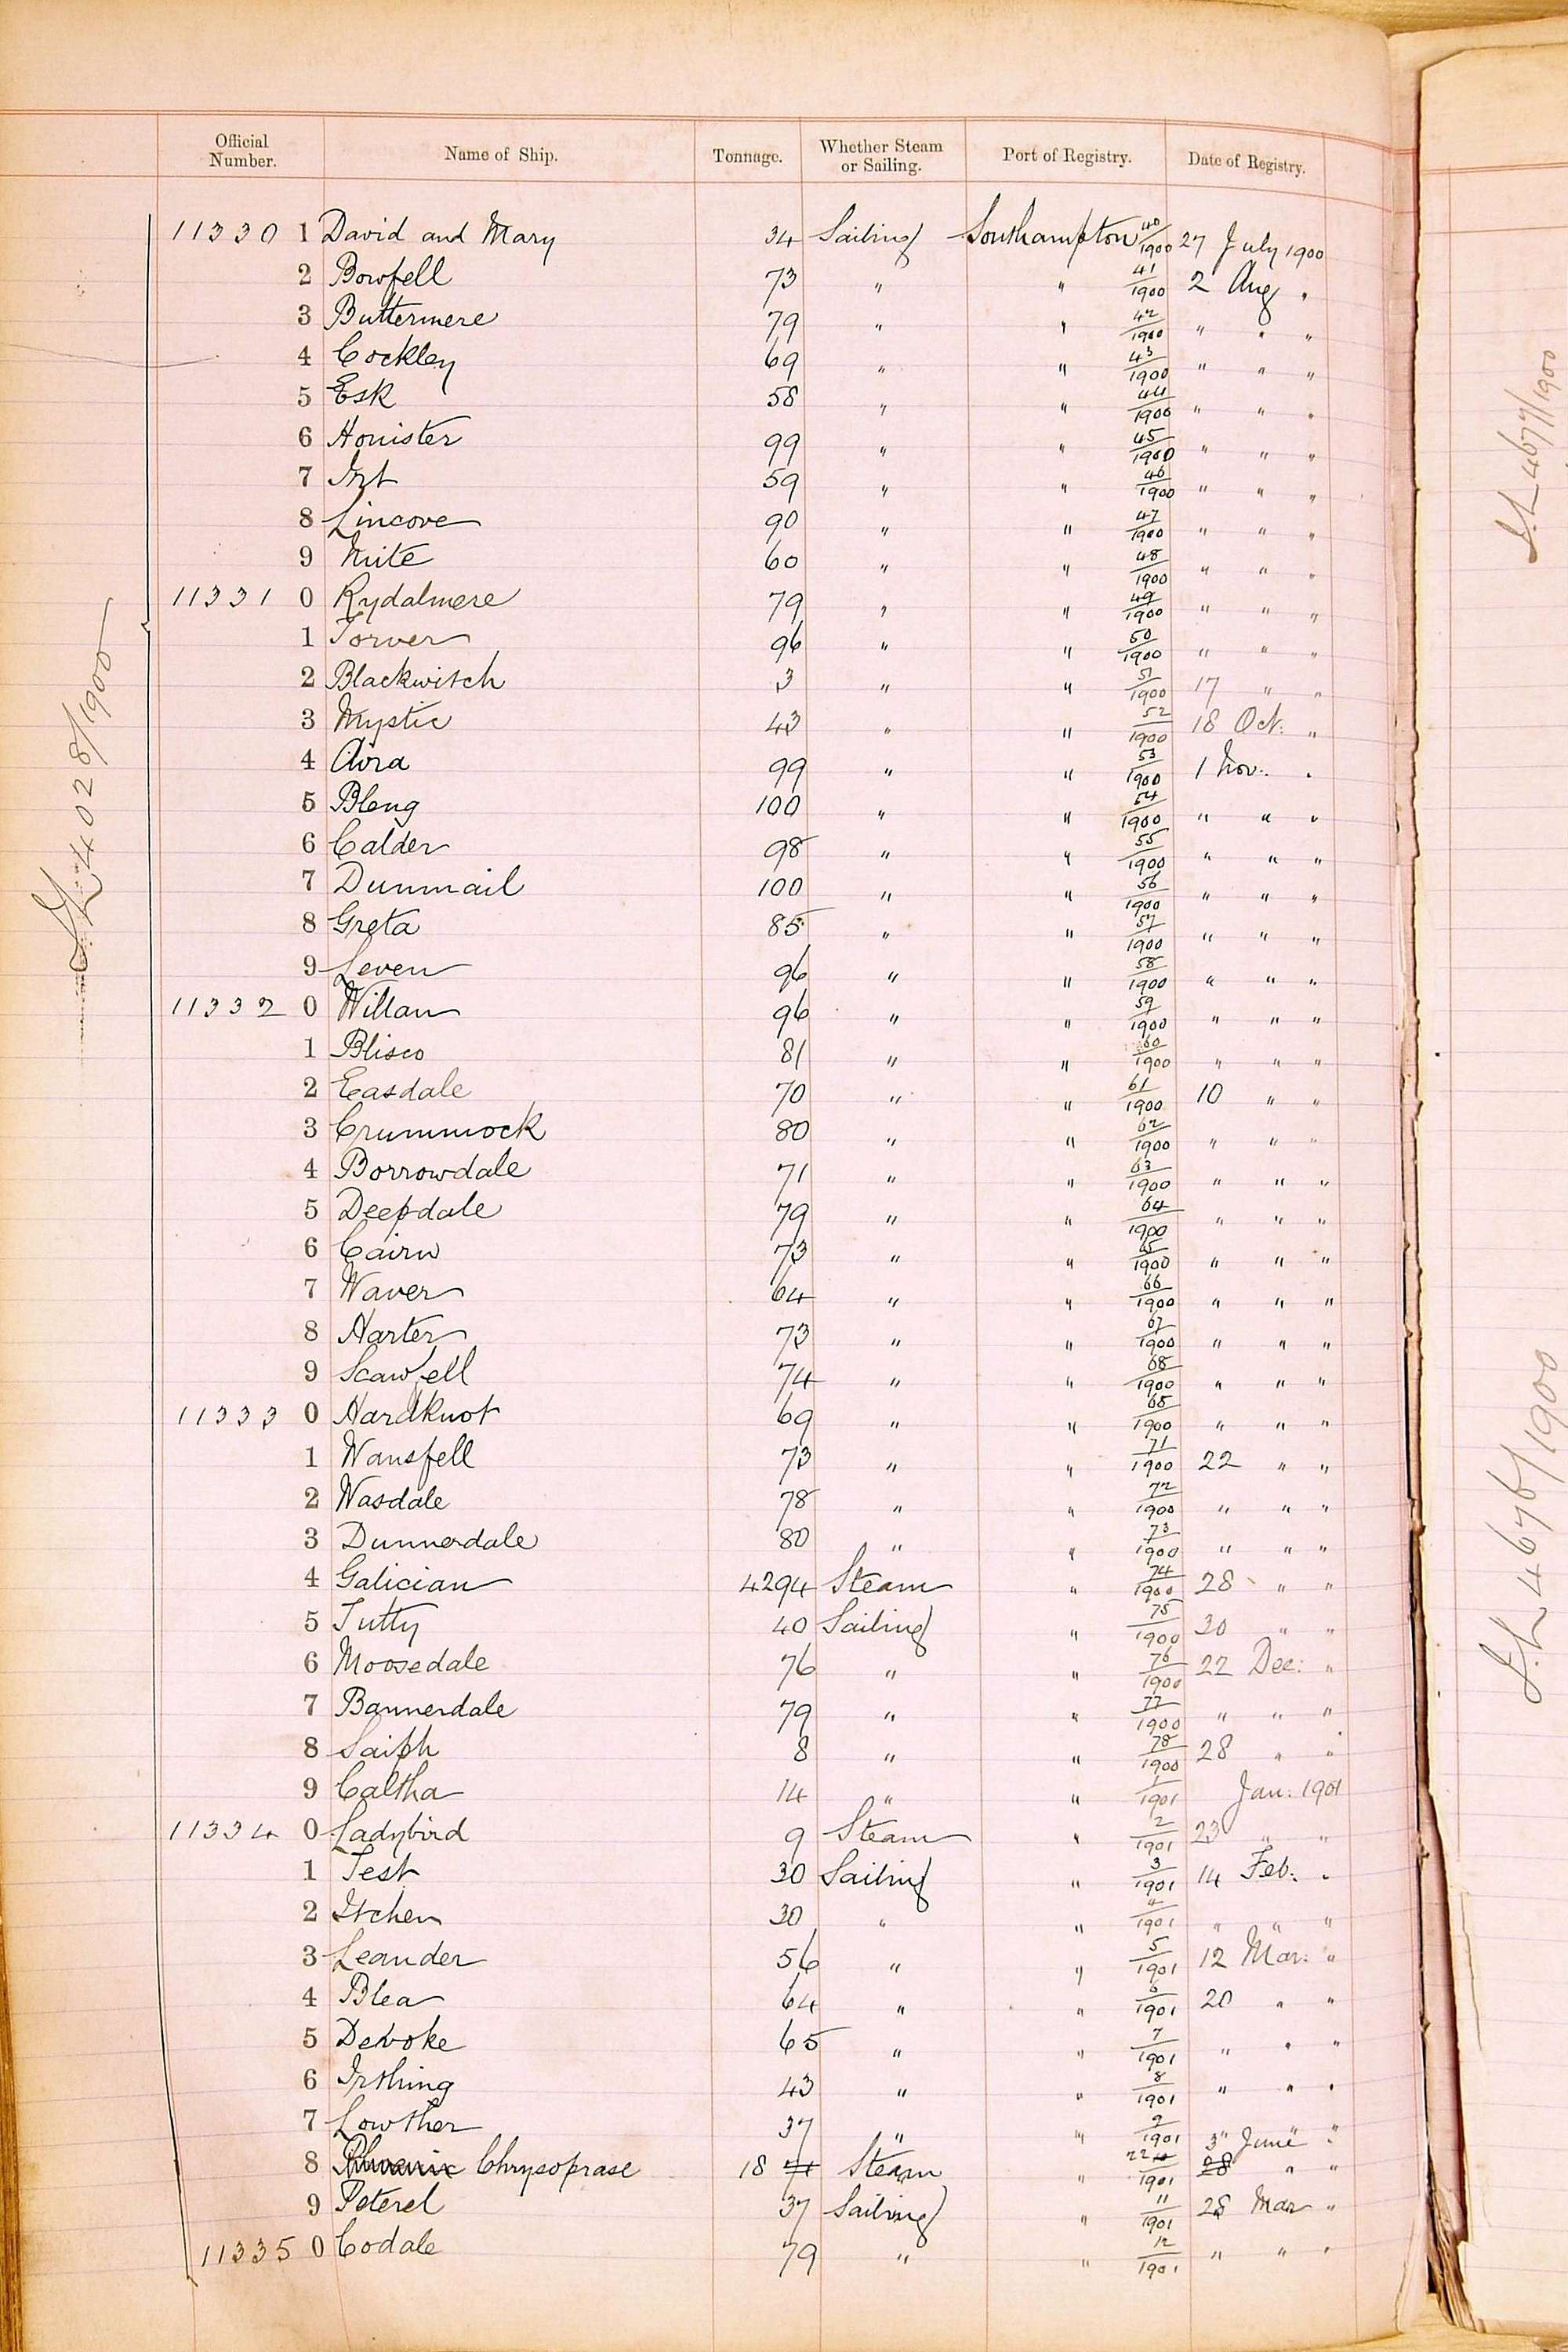 Official Number. Name of Ship. Tonnage. Whether Steam or Sailing. Port of Registry. Date of Registry.
11330 1 David and Mary 34 Sailing Southampton 40/1900 27 July 1900
2 Bowfell 73 " " 41/1900 2 Aug "
3 Buttermere 79 " " 42/1900 " " "
4 Cockley 69 " " 43/1900 " " "
5 Esk 58 " " 44/1900 " " "
6 Honister 99 " " 45/1900 " " "
7 Irt 59 " " 46/1900 " " "
8 Lincove 90 " " 47/1900 " " "
9 Mite 60 " " 48/1900 " " "
11331 0 Rydalmere 79 " " 49/1900 " " "
1 Torver 96 " " 50/1900 " " "
2 Blackwitch 3 " " 51/1900 17 " "
3 Mystic 43 " " 52/1900 18 Oct. "
4 Aira 99 " " 53/1900 1 Nov. "
5 Bleng 100 " " 54/1900 " " "
6 Calder 98 " " 55/1900 " " "
7 Dunmail 100 " " 56/1900 " " "
8 Greta 85 " " 57/1900 " " "
9 Leven 96 " " 58/1900 " " "
11332 0 Willan 96 " " 59/1900 " " "
1 Blisco 81 " " 60/1900 " " "
2 Easdale 70 " " 61/1900 10 " "
3 Crummock 80 " " 62/1900 " " "
4 Borrowdale 71 " " 63/1900 " " "
5 Deepdale 79 " " 64/1900 " " "
6 Cairn 73 " " 65/1900 " " "
7 Waver 64 " " 66/1900 " " "
8 Harter 73 " " 67/1900 " " "
9 Scawfell 74 " " 68/1900 " " "
11333 0 Hardknot 69 " " /1900 " " "
1 Wansfell 73 " " 71/1900 22 " "
2 Wasdale 78 " " 72/1900 " " "
3 Dunnerdale 80 " " 73/1900 " " "
4 Galician 4294 Steam " 74/1900 28 " "
5 Tutty 40 Sailing " 75/1900 30 " "
6 Moosedale 76 " " 76/1900 22 Dec: "
7 Bannerdale 79 " " 77/1900 " " "
8 Saiph 8 " " 78/1900 28 " "
9 Caltha 14 " " 1/1901 Jan: 1901
11334 0 Ladybird 9 Steam " 2/1901 23 " "
1 Test 30 Sailing " 3/1901 14 Feb: "
2 Itchen 30 " " 4/1901 " " "
3 Leander 56 " " 5/1901 12 Mar: "
4 Blea 64 " " 6/1901 20 " "
5 Devoke 65 " " 7/1901 " " "
6 Irthing 43 " " 8/1901 " " "
7 Lowther 37 " " 9/1901 " " "
8 Phoenix Chrysoprase 18 Steam " 22/1901 3 June 28 " "
9 Peterel 37 Sailing " 11/1901 28 Mar "
11335 0 Codale 79 " " 12/1901 " " "
4028/1900
4677/1900
4676/1900